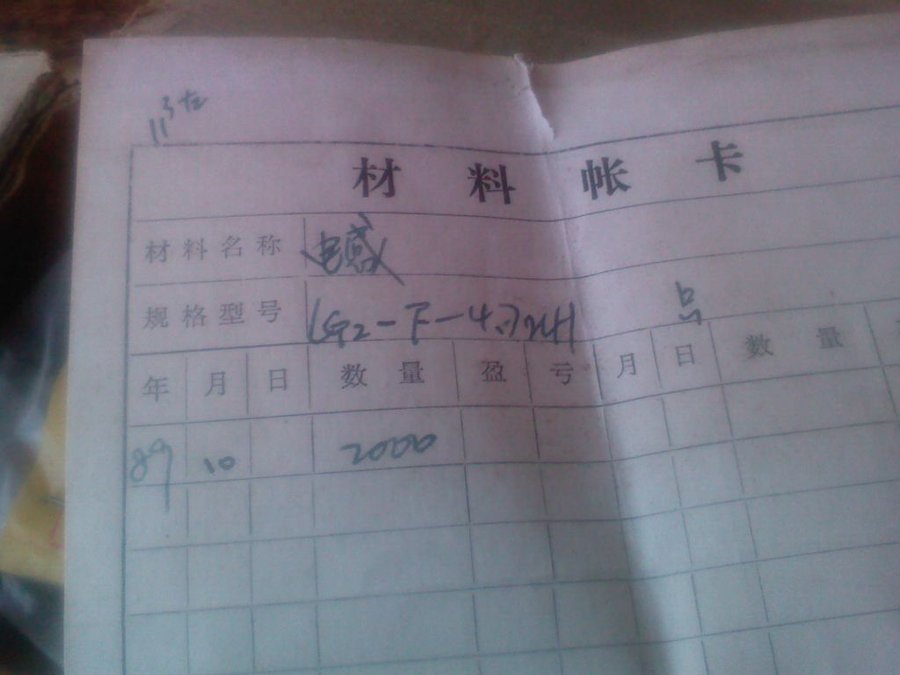 材料帐卡
材料名称 电感
规格型号 LG2-F-4.7
年 月 日 数量 盈亏 月 日 数量
89 10 2000